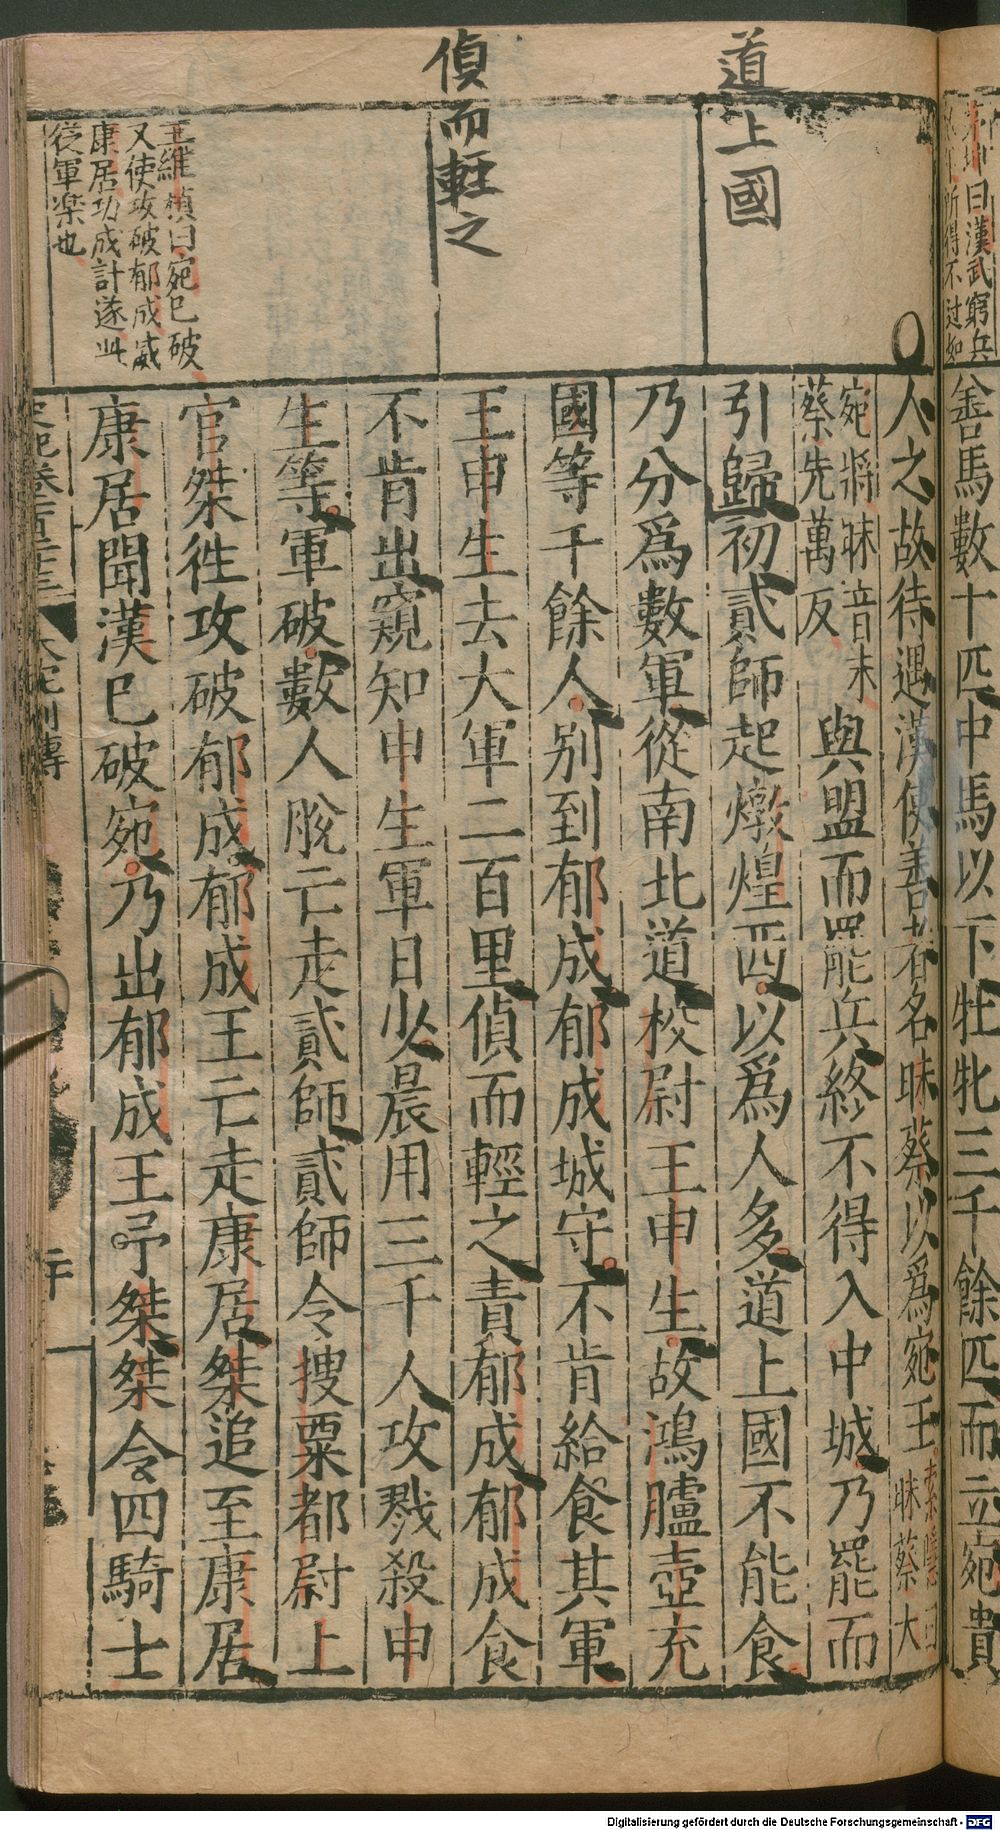 道上國
偵而輕之
王維楨曰宛已破
又使攻破郁成威
康居功成計遂此
從軍楽也
曰漢武窮兵
所得不过如
善馬數十匹中馬以下牡牝三千餘匹而立宛貴
人之故待遇漢使善者名昧蔡以爲宛王索隱曰昧蔡大
宛將昧音末
蔡先葛反
與盟而罷兵終不得入中城乃罷而
引歸初貳師起燉煌西以爲人多道上國不能食
乃分爲數軍從南北道校尉王申生故鴻臚壺充
國等千餘人别到郁成郁成城守不肯給食其軍
王申生去大軍二百里偵而輕之責郁成郁成食
不肯出窺知申生軍日少晨用三千人攻戮殺申
生等軍破數人脫亡走貳師貳師令搜粟都尉上
官桀徃攻破郁成郁成王亡走康居桀追至康居
康居聞漢已破宛乃出郁成王予桀桀令四騎士
史記卷一百二十三 大宛列傳
Digitalisierung gefördert durch die Deutsche Forschungsgemeinschaft - DFG